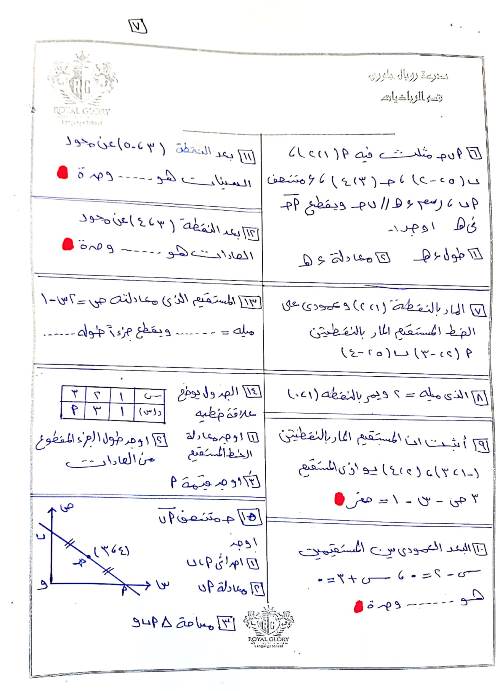 ٧
مدرسة رويال جلورى
قسم الرياضيات
ROYAL GLORY
٦ P ب ح مثلث فيه P (١،٢)،
ب (٥،-٢) ، ح (٣،٤) ، ء منتصف
P ب ، رسم ء ه // ب ح ويقطع P ح
فى ه اوجد :-
١ طول ء ه ٢ معادلة ء ه
٧ المار بالنقطة (١،٢) وعمودى على
الخط المستقيم المار بالنقطتين
P (٢،-٣) ب (٥،-٤)
٨ الذى ميله = ٢ ويمر بالنقطه (١،٠)
٩ أثبت ان المستقيم المار بالنقطتين
(-١،٣) ، (٢،٤) يوازى المستقيم
٣ ص - س - ١ = صفر
١٠ البعد العمودى بين المستقيمين
س - ٢ = ٠ ، س + ٣ = ٠
هو ...... وحدة
١١ بعد النقطة (٣،-٥) عن محور
السينات هو ...... وحدة
١٢ بعد النقطة (٣،٤) عن محور
الصادات هو ...... وحدة
١٣ المستقيم الذى معادلته ص = ٢س - ١
ميله = ........ ويقطع جزءاً طوله ......
١٤ الجدول يوضح
علاقة خطيه
س ١ ٢ ٣
د(س) ١ ٣ P
١ اوجد معادلة
الخط المستقيم
٢ اوجد طول الجزء المقطوع
من الصادات
٣ اوجد قيمة P
١٥ ح منتصف P ب
اوجد
١ احداثى P ، ب
٢ معادلة P ب
٣ مساحة Δ P ب و
ص
ب
ح (٤،٣)
و
P
س
ROYAL GLORY